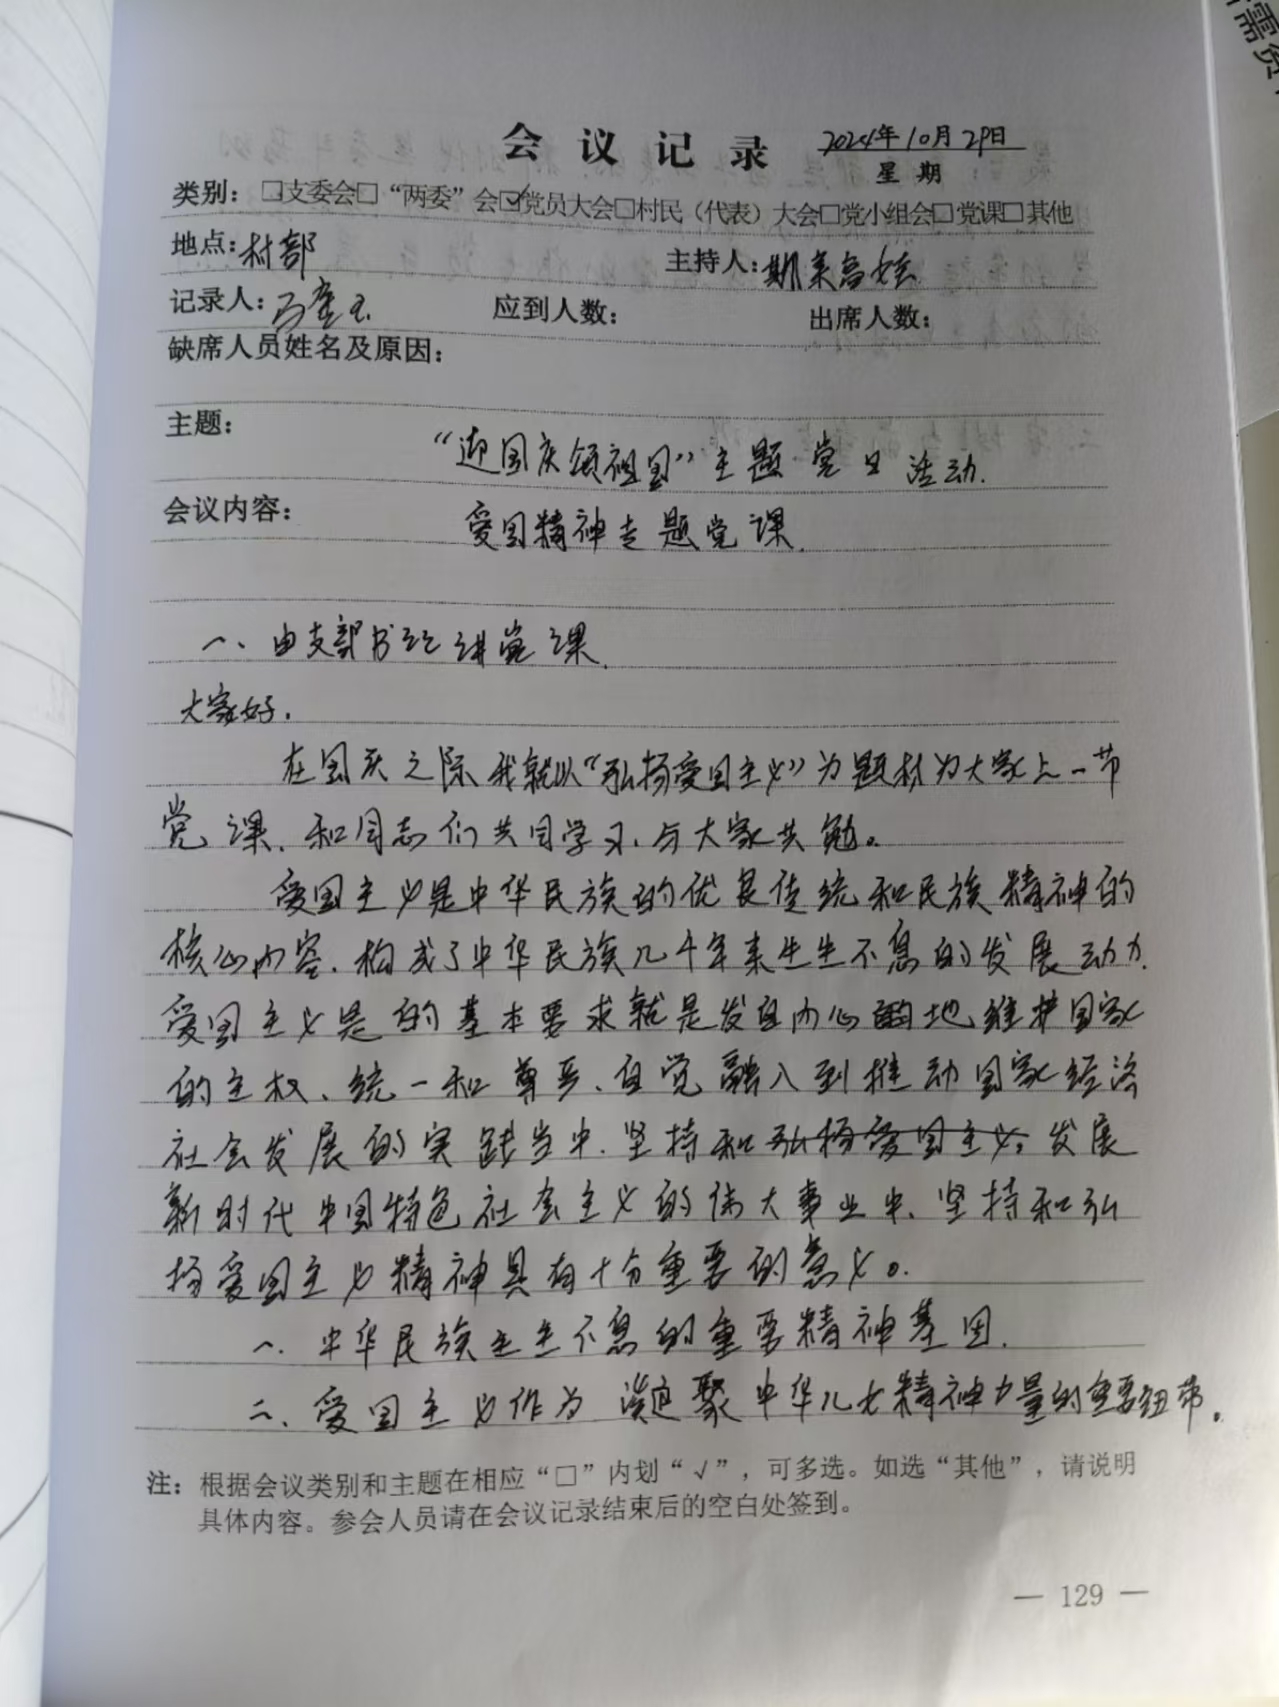 需
会议记录 2024年10月29日
星期
类别：□支委会□“两委”会☑党员大会□村民（代表）大会□党小组会□党课□其他
地点：村部 主持人：斯来高娃
记录人： 应到人数： 出席人数：
缺席人员姓名及原因：
主题：
“迎国庆颂祖国”主题党日活动.
会议内容：
爱国精神专题党课.
一、由支部书记讲党课.
大家好.
在国庆之际我就以“弘扬爱国主义”为题材为大家上一节
党课、和同志们共同学习、与大家共勉。
爱国主义是中华民族的优良传统和民族精神的
核心内容、构成了中华民族几千年来生生不息的发展动力.
爱国主义是的基本要求就是发自内心地维护国家
的主权、统一和尊严、自觉融入到推动国家经济
社会发展的实践当中.坚持和弘扬爱国主义，发展
新时代中国特色社会主义的伟大事业中、坚持和弘
扬爱国主义精神具有十分重要的意义。
一、中华民族生生不息的重要精神基因.
二、爱国主义作为凝聚中华儿女精神力量的重要纽带。
注：根据会议类别和主题在相应“□”内划“√”，可多选。如选“其他”，请说明
具体内容。参会人员请在会议记录结束后的空白处签到。
— 129 —